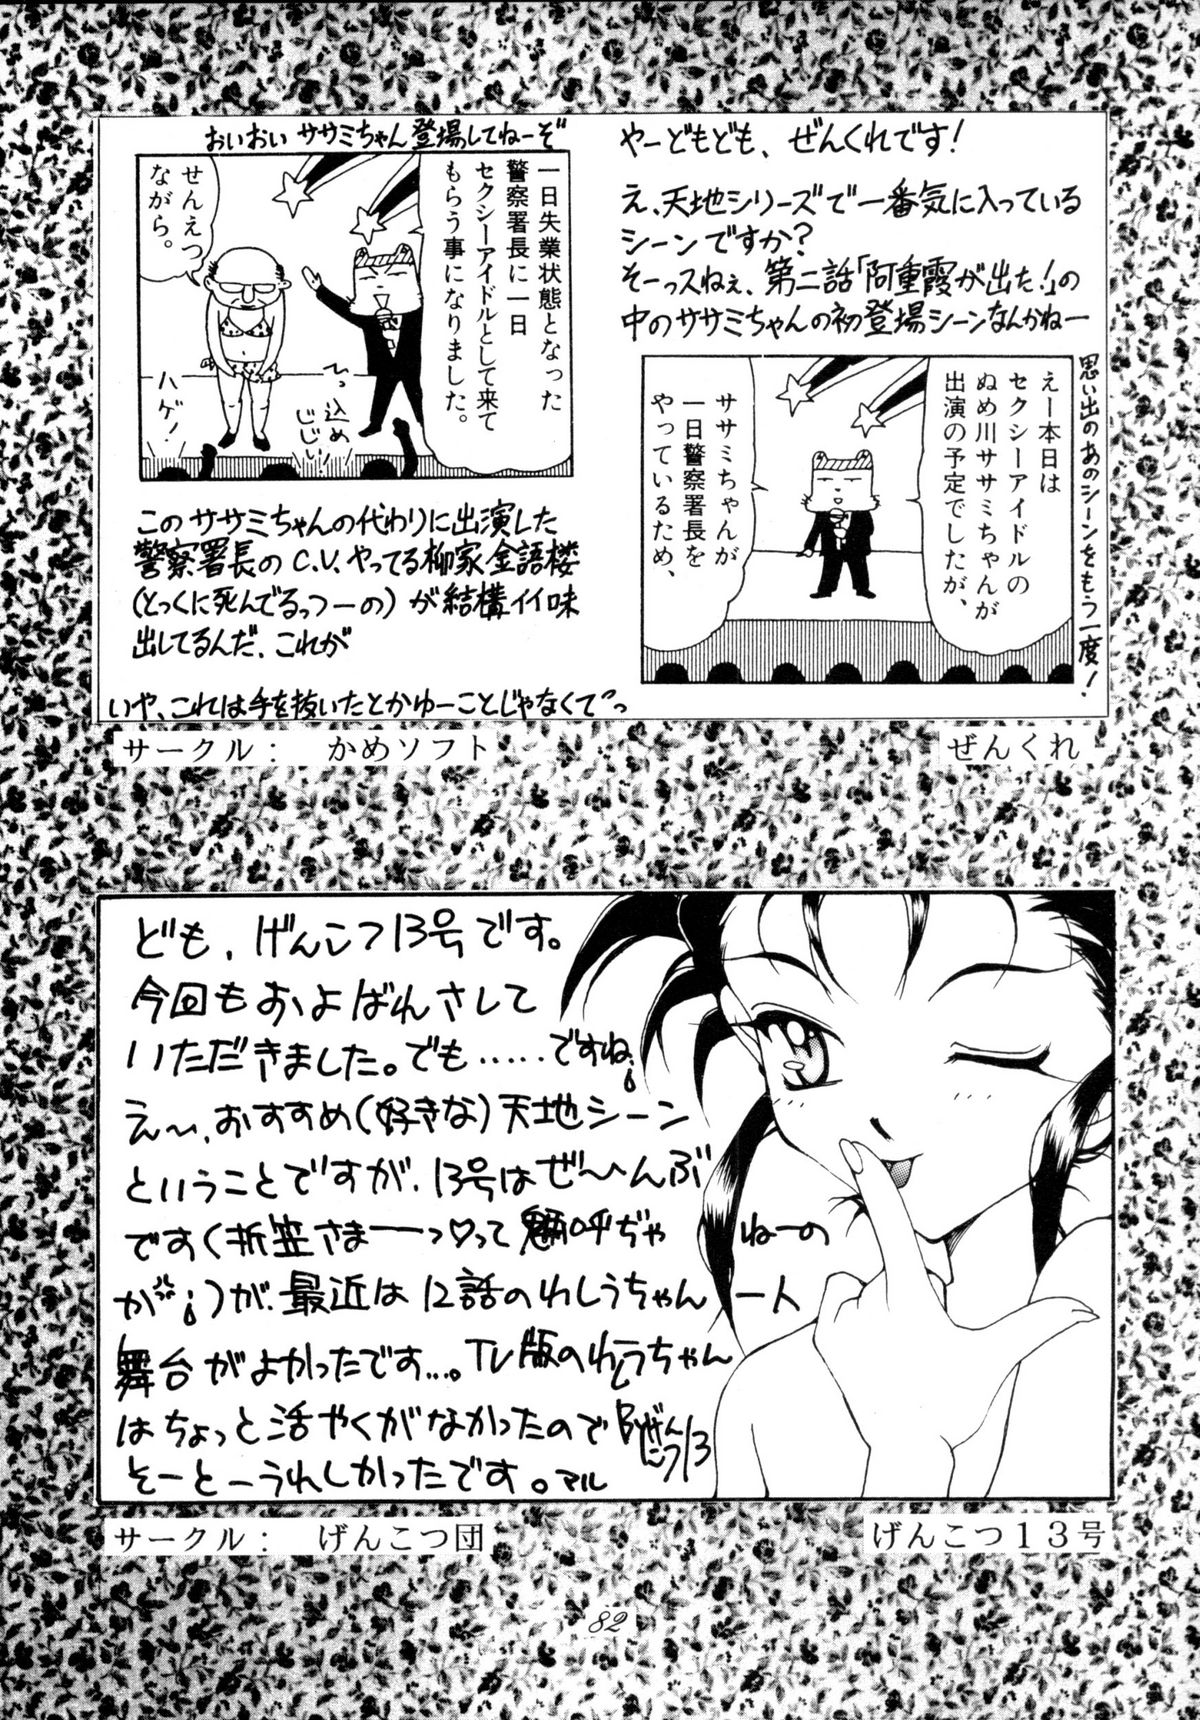 やーどもども、ぜんくれです！
え、天地シリーズで一番気に入っている
シーンですか？
そーっスねぇ、第二話「阿重霞が出た！」の
中のササミちゃんの初登場シーンなんかねー
思い出のあのシーンをもう一度！
えー本日は
セクシーアイドルの
ぬめ川ササミちゃんが
出演の予定でしたが、
ササミちゃんが
一日警察署長を
やっているため、
おいおいササミちゃん登場してねーぞ
一日失業状態となった
警察署長に一日
セクシーアイドルとして来て
もらう事になりました。
せんえつ
ながら。
ハゲ！
ひっ込め
じじい！
このササミちゃんの代わりに出演した
警察署長のC.V.やってる柳家金語楼
(とっくに死んでるっつーの)が結構イイ味
出してるんだ、これが
いや、これは手を抜いたとかゆーことじゃなくてっ
サークル： かめソフト
ぜんくれ
ども、げんこつ13号です。
今回もおよばれさして
いただきました。でも……ですね、
え〜、おすすめ(好きな)天地シーン
ということですが、13号はぜ〜んぶ
です(折笠さまーーっ♡って 呼ぢゃ ねーの
か゛)が、最近は12話のわしうちゃん 一人
舞台がよかったです…。TV版のわしうちゃん
はちょっと活やくがなかったので
そーとーうれしかったです。マル
Byげん
こつ13
サークル： げんこつ団
げんこつ１３号
82